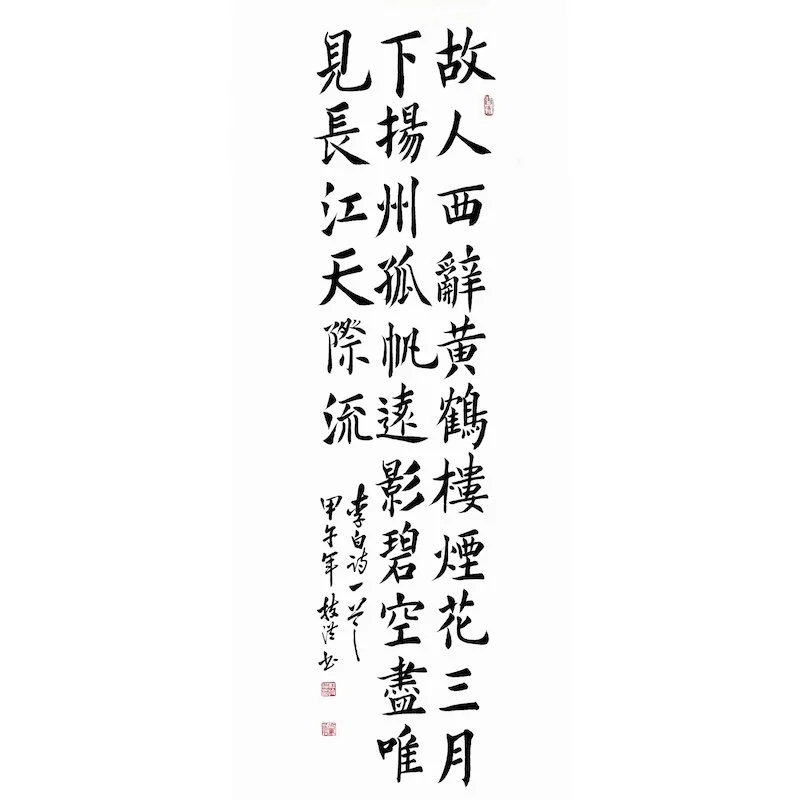 故人西辭黃鶴樓煙花三月
下揚州孤帆遠影碧空盡唯
見長江天際流
李白詩一首
甲午年枝滢书